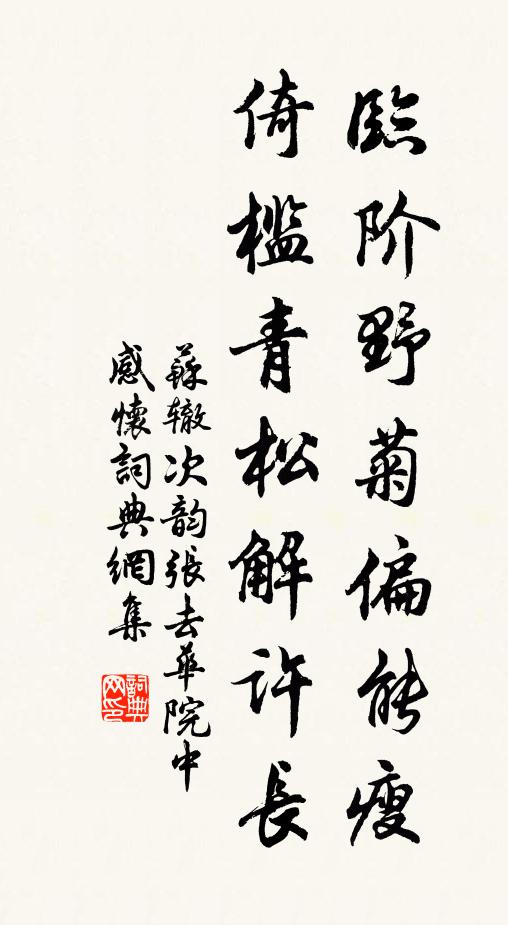 臨阶野菊偏能瘦
倚檻青松解许長
蘇辙次韵張去華院中
感懷詞典網集
詞典
网印